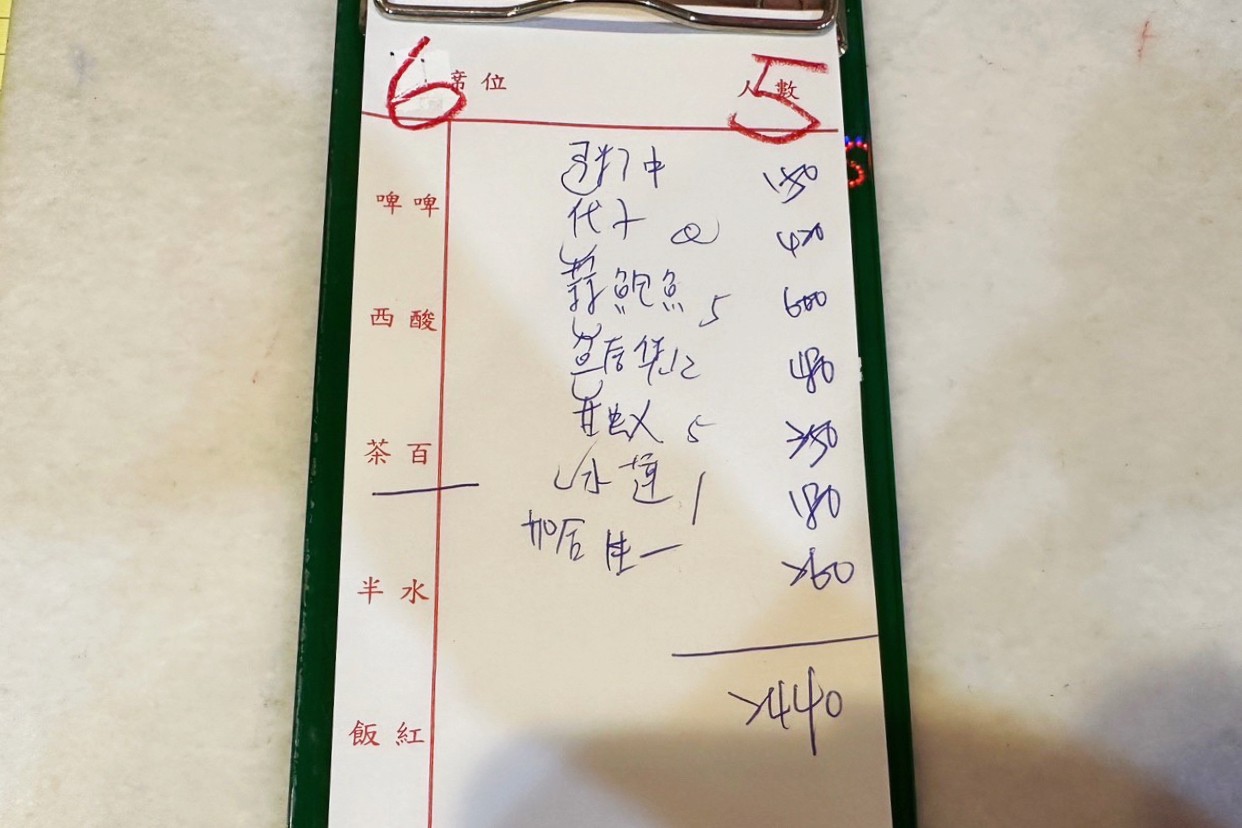 6 席位 5 人數
啤啤
西酸
茶百
半水
飯紅
中 150
代子 2 420
蒜鮑魚 5 600
12 480
5 250
水蓮 1 180
加后生一 260
2440